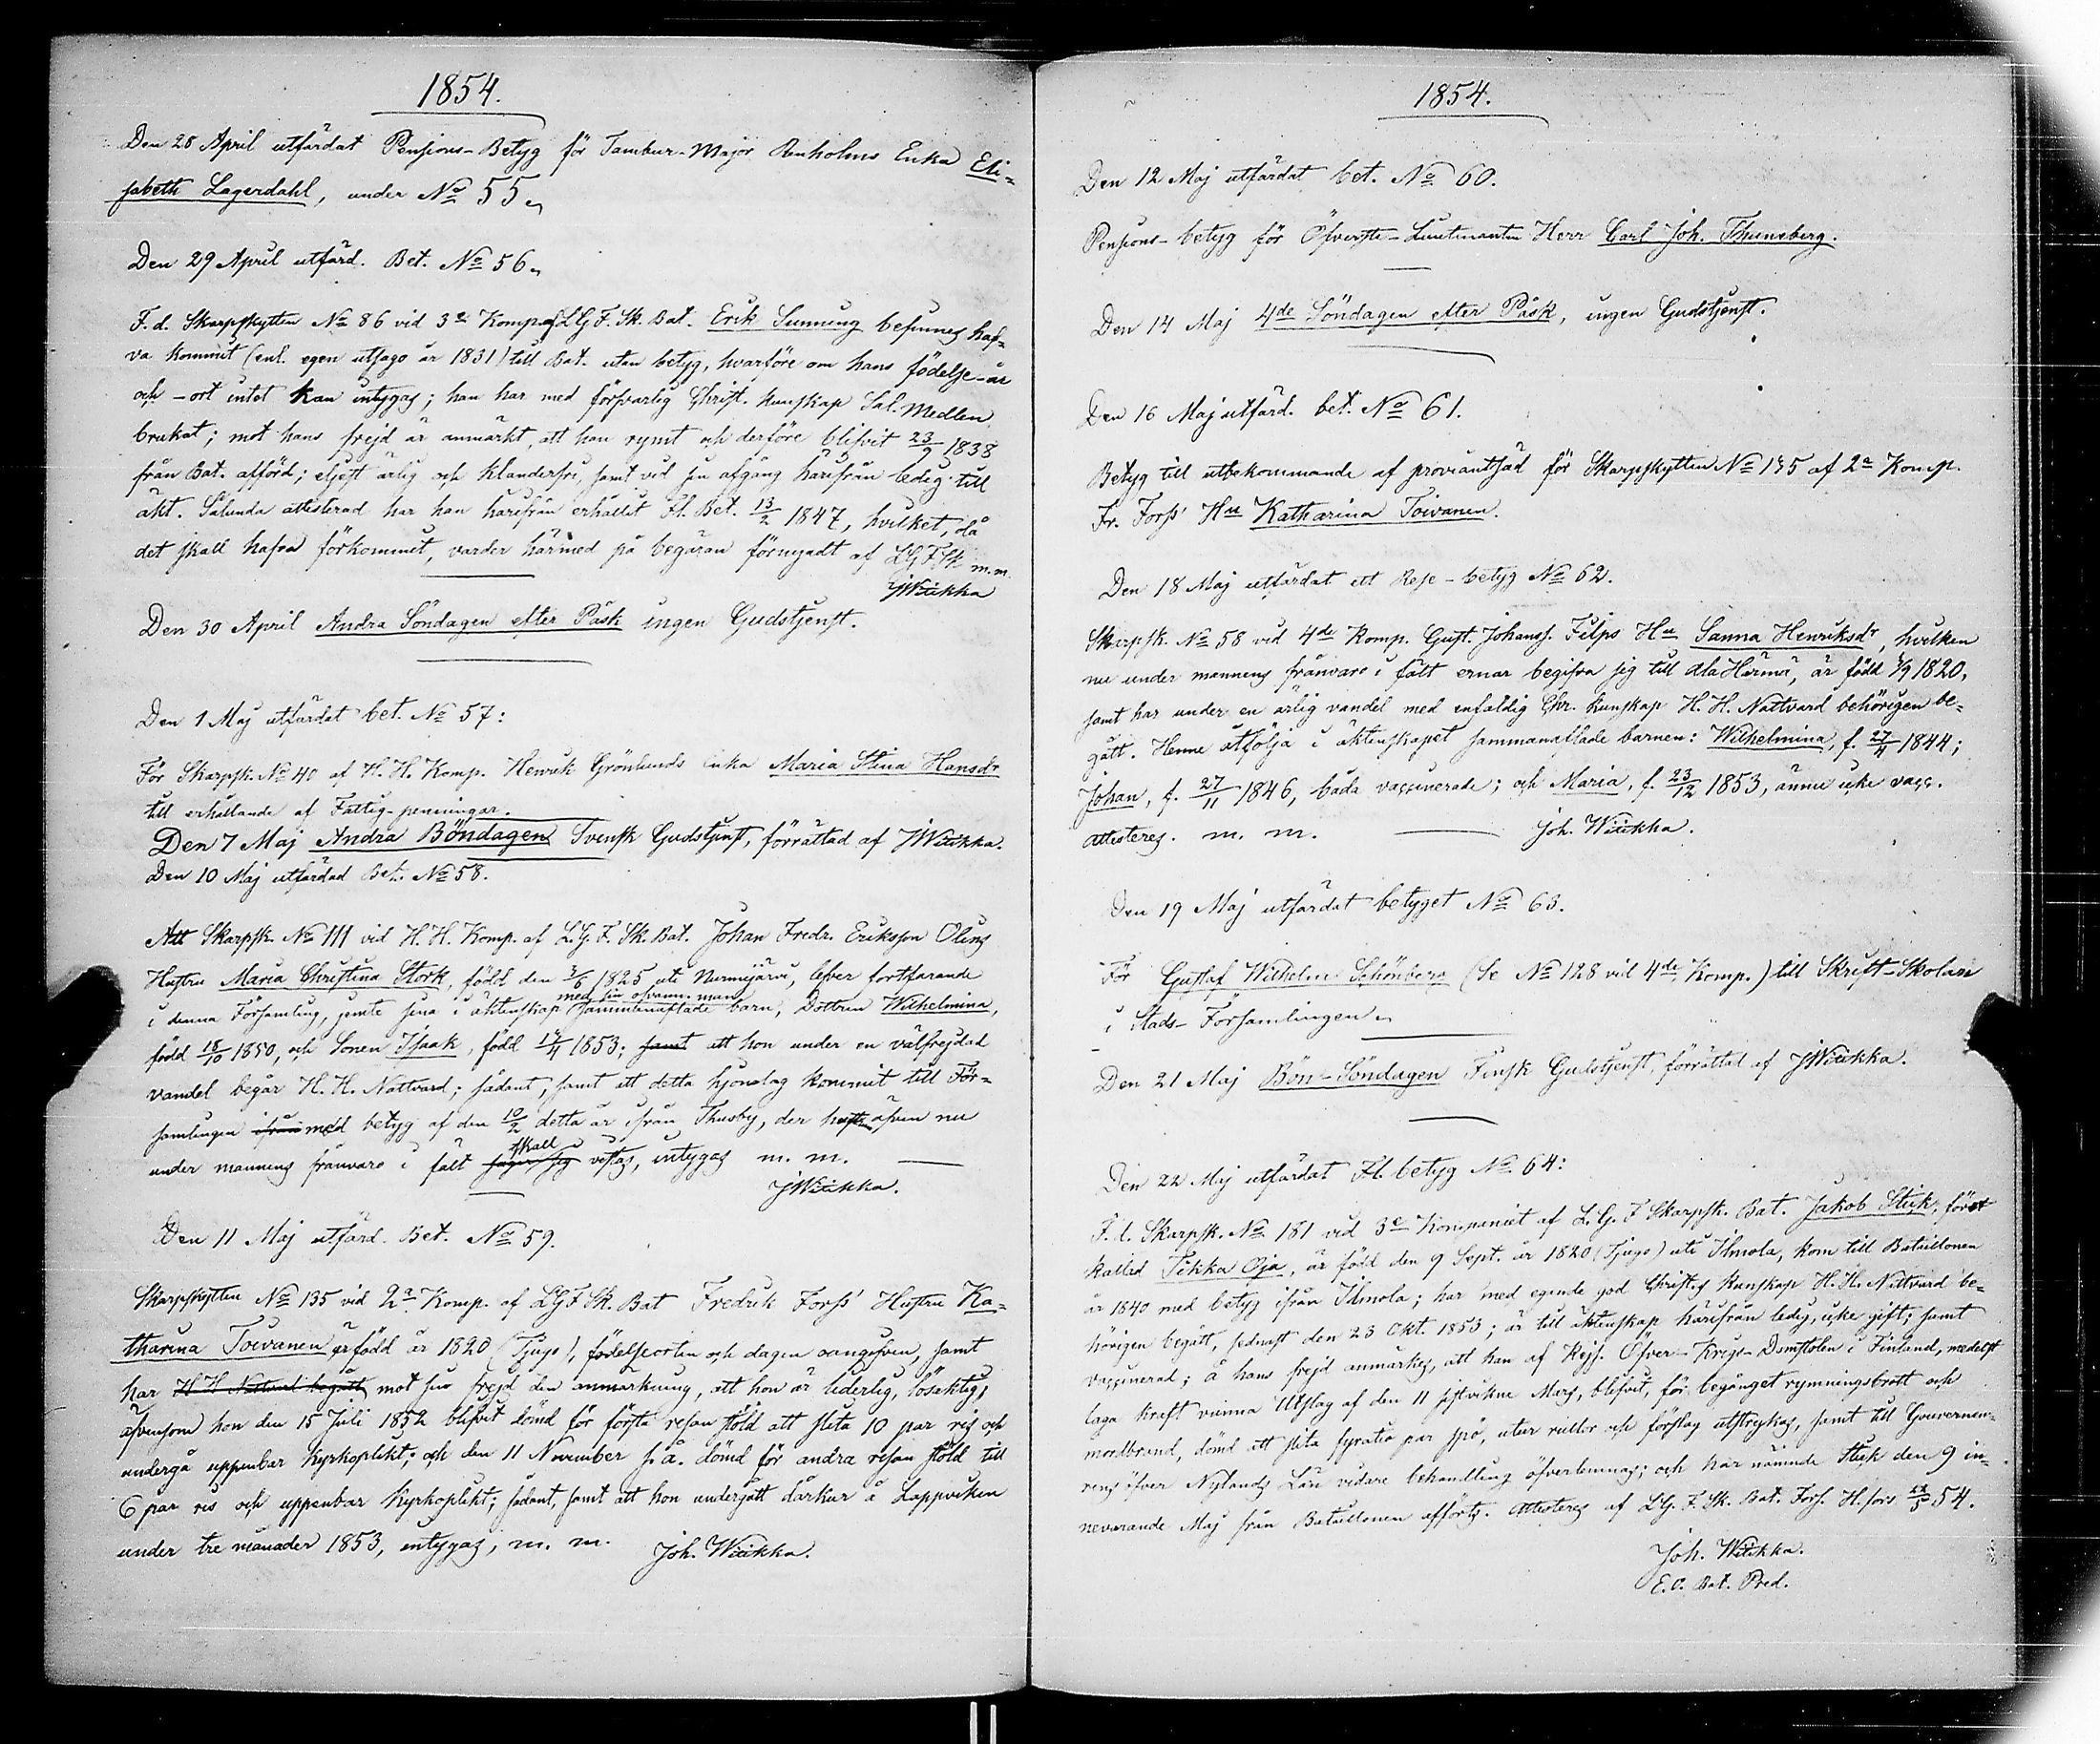 1854.
Den 28 April utfärdat Pensions-Betyg för Tambur-Major Renholms Enka Eli-
sabeth Lagerdahl, under No 55.
Den 29 April utfärd. Bet. No 56.
F. d. Skarpskytten No 86 vid 3e Komp af LG F. Sk. Bat. Erik Sunning befinnes haf-
va kommit (enl. egen utsago år 1831) till Bat. utan betyg, hvarföre om hans födelse-år
och -ort intet kan intygas; han har med försvarlig Christ. kunskap Sal. Medlen
brukat; mot hans frejd är anmärkt, att han rymt och derföre blifvit 23/9 1838
från Bat. afförd; eljest ärlig och klanderfri, samt vid sin afgång härifrån ledig till
äkt. Sålunda attesterad har han härifrån erhållit Fl. Bet. 13/2 1847, hvilket, då
det skall hafva förkommit, varder härmed på begäran förnyadt af LG F Sk m.m.
JWiikka
Den 30 April Andra Söndagen efter Påsk ingen Gudstjenst.
Den 1 Maj utfärdat bet. No 57:
För Skarpsk. No 40 af H. H. Komp. Henrik Grönlunds enka Maria Stina Hansdr
till erhållande af Fattig-penningar.
Den 7 Maj Andra Böndagen Svensk Gudstjenst, förrättad af JWiikka.
Den 10 Maj utfärdad Bet. No 58.
Att Skarpsk. No 111 vid H. H. Komp. af L. G. F. Sk. Bat. Johan Fredr. Eriksson Olins
Hustru Maria Christina Stork, född den 3/6 1825 uti Nurmijärvi, lefver fortfarande
med sin ofvann. man
i denna Församling, jemte sina i äktenskap sammanaflade barn, Dottren Wilhelmina,
född 18/10 1850, och Sonen Isaak, född 14/4 1853; samt att hon under en välfrejdad
vandel begår H. H. Nattvard; sådant, samt att detta hjonelag kommit till För-
samlingen ifrån med betyg af den 10/2 detta år ifrån Thusby, der äfven nu
skall
under mannens frånvaro i fält säger sig vistas, intygas m. m.
JWiikka.
Den 11 Maj utfärd. Bet. No 59.
Skarpskytten No 135 vid 2a Komp. af LG F Sk. Bat Fredrik Forss' Hustru Ka-
tharina Toivanen är född år 1820 (Tjugo), födelseorten och dagen oangifven, samt
har H H Nattvard begått mot sin frejd den anmärkning, att hon är liderlig, lösaktig;
äfvensom hon den 15 Juli 1852 blifvit dömd för första resan stöld att slita 10 par ris och
undergå uppenbar kyrkoplikt; och den 11 November s. å. dömd för andra resan stöld till
6 par ris och uppenbar kyrkoplikt; sådant, samt att hon undergått dårkur å Lappviken
under tre månader 1853, intygas, m. m. Joh. Wiikka.
1854.
Den 12 Maj utfärdat bet. No 60.
Pensions-betyg för Öfverste-Lieutenanten Herr Carl Joh. Thunsberg.
Den 14 Maj 4de Söndagen efter Påsk, ingen Gudstjenst.
Den 16 Maj utfärd. bet. No 61.
Betyg till utbekommande af proviantsäd för Skarpskytten No 135 af 2a Komp.
Fr. Forss' Hu Katharina Toivanen.
Den 18 Maj utfärdat ett Rese-betyg No 62.
Skarpsk. No 58 vid 4de Komp. Gust. Johanss. Filps Hu Sanna Henriksdr, hvilken
nu under mannens frånvaro i fält ernar begifva sig till Ala Härmä, är född 1/9 1820,
samt har under en ärlig vandel med enfaldig Chr. kunskap H. H. Nattvard behörigen be-
gått. Henne åtfölja i äktenskapet sammanaflade barnen: Wilhelmina, f. 27/4 1844;
Johan, f. 27/11 1846, båda vaccinerade; och Maria, f. 23/12 1853, ännu icke vacc.
attesteres. m. m. Joh. Wiikka.
Den 19 Maj utfärdat betyget No 63.
För Gustaf Wilhelm Schönberg (Se No 128 vid 4de Komp.) till Skrift-Skolan
i Stads-Församlingen.
Den 21 Maj Bön-Söndagen Finsk Gudstjenst, förrättad af JWiikka.
Den 22 Maj utfärdat Fl. betyg No 64:
F. d. Skarpsk. No 181 vid 3e Kompaniet af L. G. F Skarpsk. Bat. Jakob Stick, förut
kallad Tikka Oja, är född den 9 Sept. år 1820 (Tjugo) uti Ilmola, kom till Bataillonen
år 1840 med betyg ifrån Ilmola; har med egende god Christ. kunskap H. H. Nattvard be-
hörigen begått, sednast den 23 Okt. 1853; är till äktenskap härifrån ledig, icke gift; samt
vaccinerad; å hans frejd anmärkes, att han af Kejs. Öfver-Krigs-Domstolen i Finland, medelst
laga kraft vunna Utslag af den 11 sistvikne Mars, blifvit, för begånget rymningsbrott och
mordbrand, dömd att slita fyratio par spö, utur rullor och förslag utstrykas, samt till Gouvernen-
rens öfver Nylands Län vidare behandling öfverlemnas; och har nämnde Stick den 9 in-
nevarande Maj från Bataillonen afförts. Attesteres af LG. F. Sk. Bat. Förs. H.fors 22/5 54.
Joh. Wiikka.
E. O. Bat. Pred.